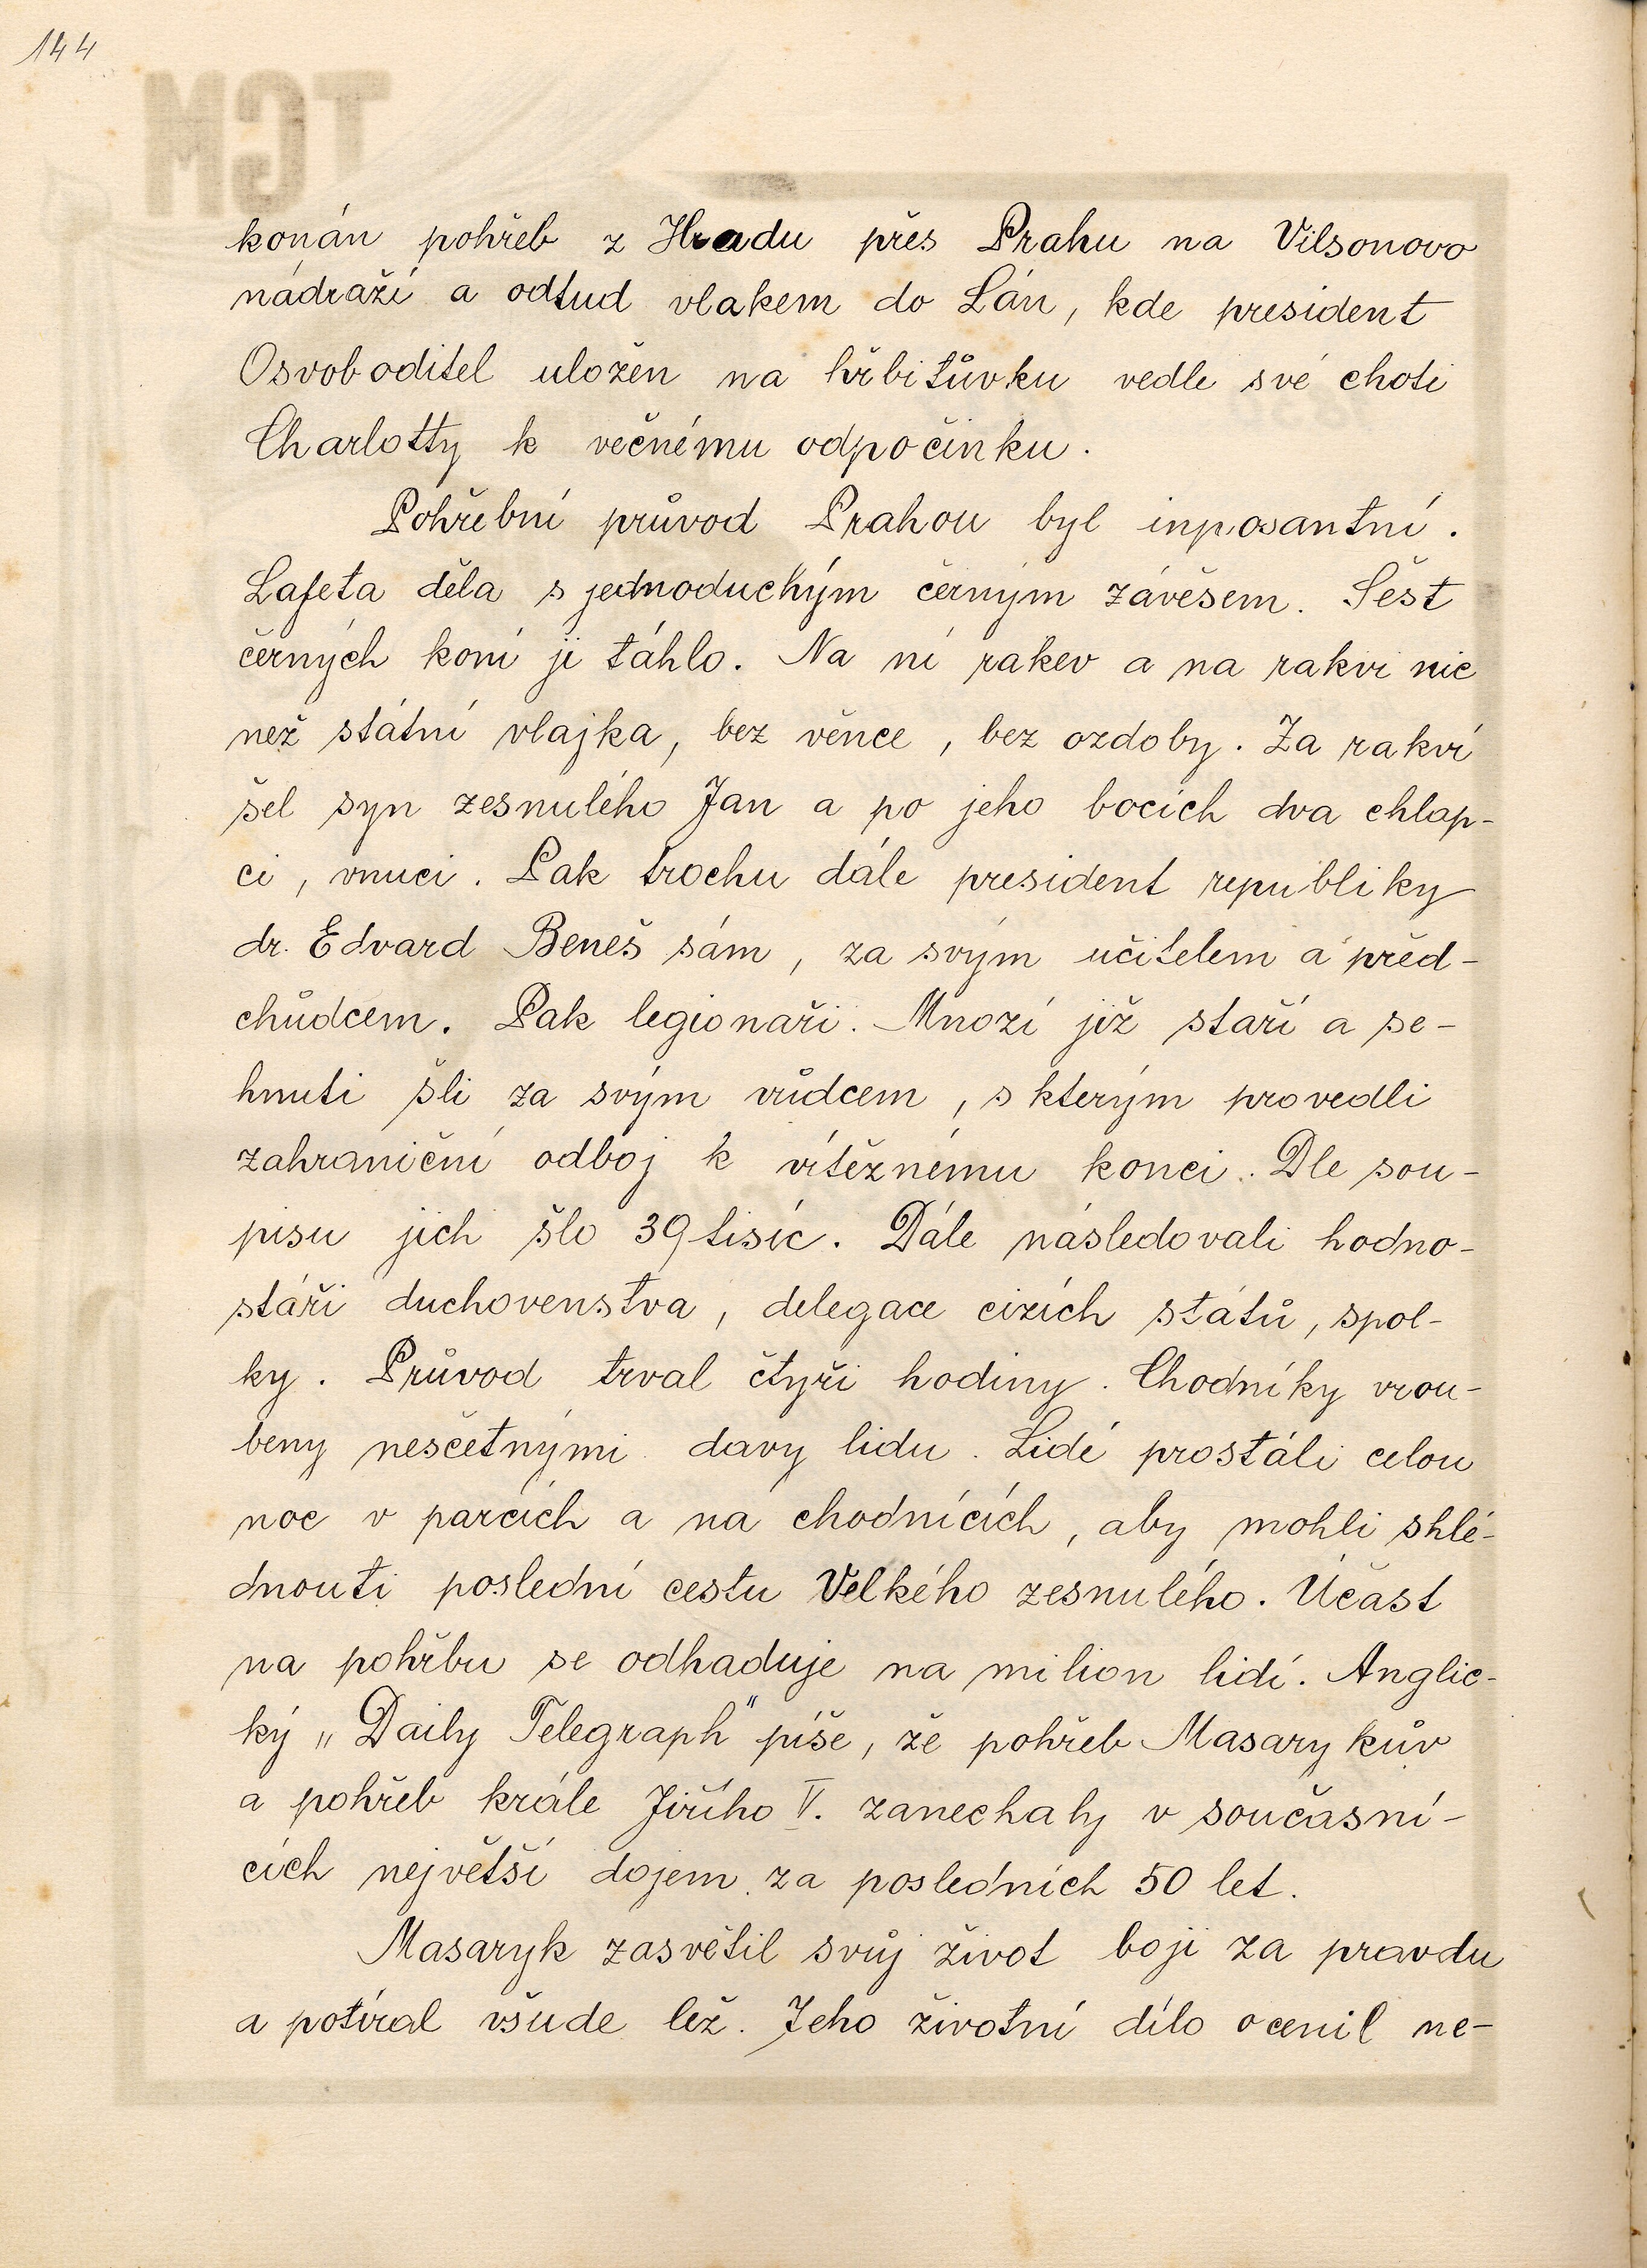 144
TGM
konán pohřeb z Hradu přes Prahu na Vilsonovo
nádraží a odtud vlakem do Lán, kde president
Osvoboditel uložen na hřbitůvku vedle své choti
Charlotty k věčnému odpočinku.
Pohřební průvod Prahou byl inposantní.
Lafeta děla s jednoduchým černým závěsem. Šest
černých koní ji táhlo. Na ní rakev a na rakvi nic
než státní vlajka, bez věnce, bez ozdoby. Za rakví
šel syn zesnulého Jan a po jeho bocích dva chlap-
ci, vnuci. Pak trochu dále president republiky
dr. Edvard Beneš sám, za svým učitelem a před-
chůdcem. Pak legionaři. Mnozí již staří a se-
hnutí šli za svým vůdcem, s kterým provedli
zahraniční odboj k vítěznému konci. Dle sou-
pisu jich šlo 39 tisíc. Dále následovali hodno-
stáři duchovenstva, delegace cizích států, spol-
ky. Průvod trval čtyři hodiny. Chodníky vrou-
beny nesčetnými davy lidu. Lidé prostáli celou
noc v parcích a na chodnících, aby mohli shlé-
dnouti poslední cestu Velkého zesnulého. Účast
na pohřbu se odhaduje na milion lidí. Anglic-
ký „Daily Telegraph" píše, že pohřeb Masarykův
a pohřeb krále Jiřího V. zanechaly v současní-
cích největší dojem za posledních 50 let.
Masaryk zasvětil svůj život boji za pravdu
a potíral všude lež. Jeho životní dílo ocenil ne-